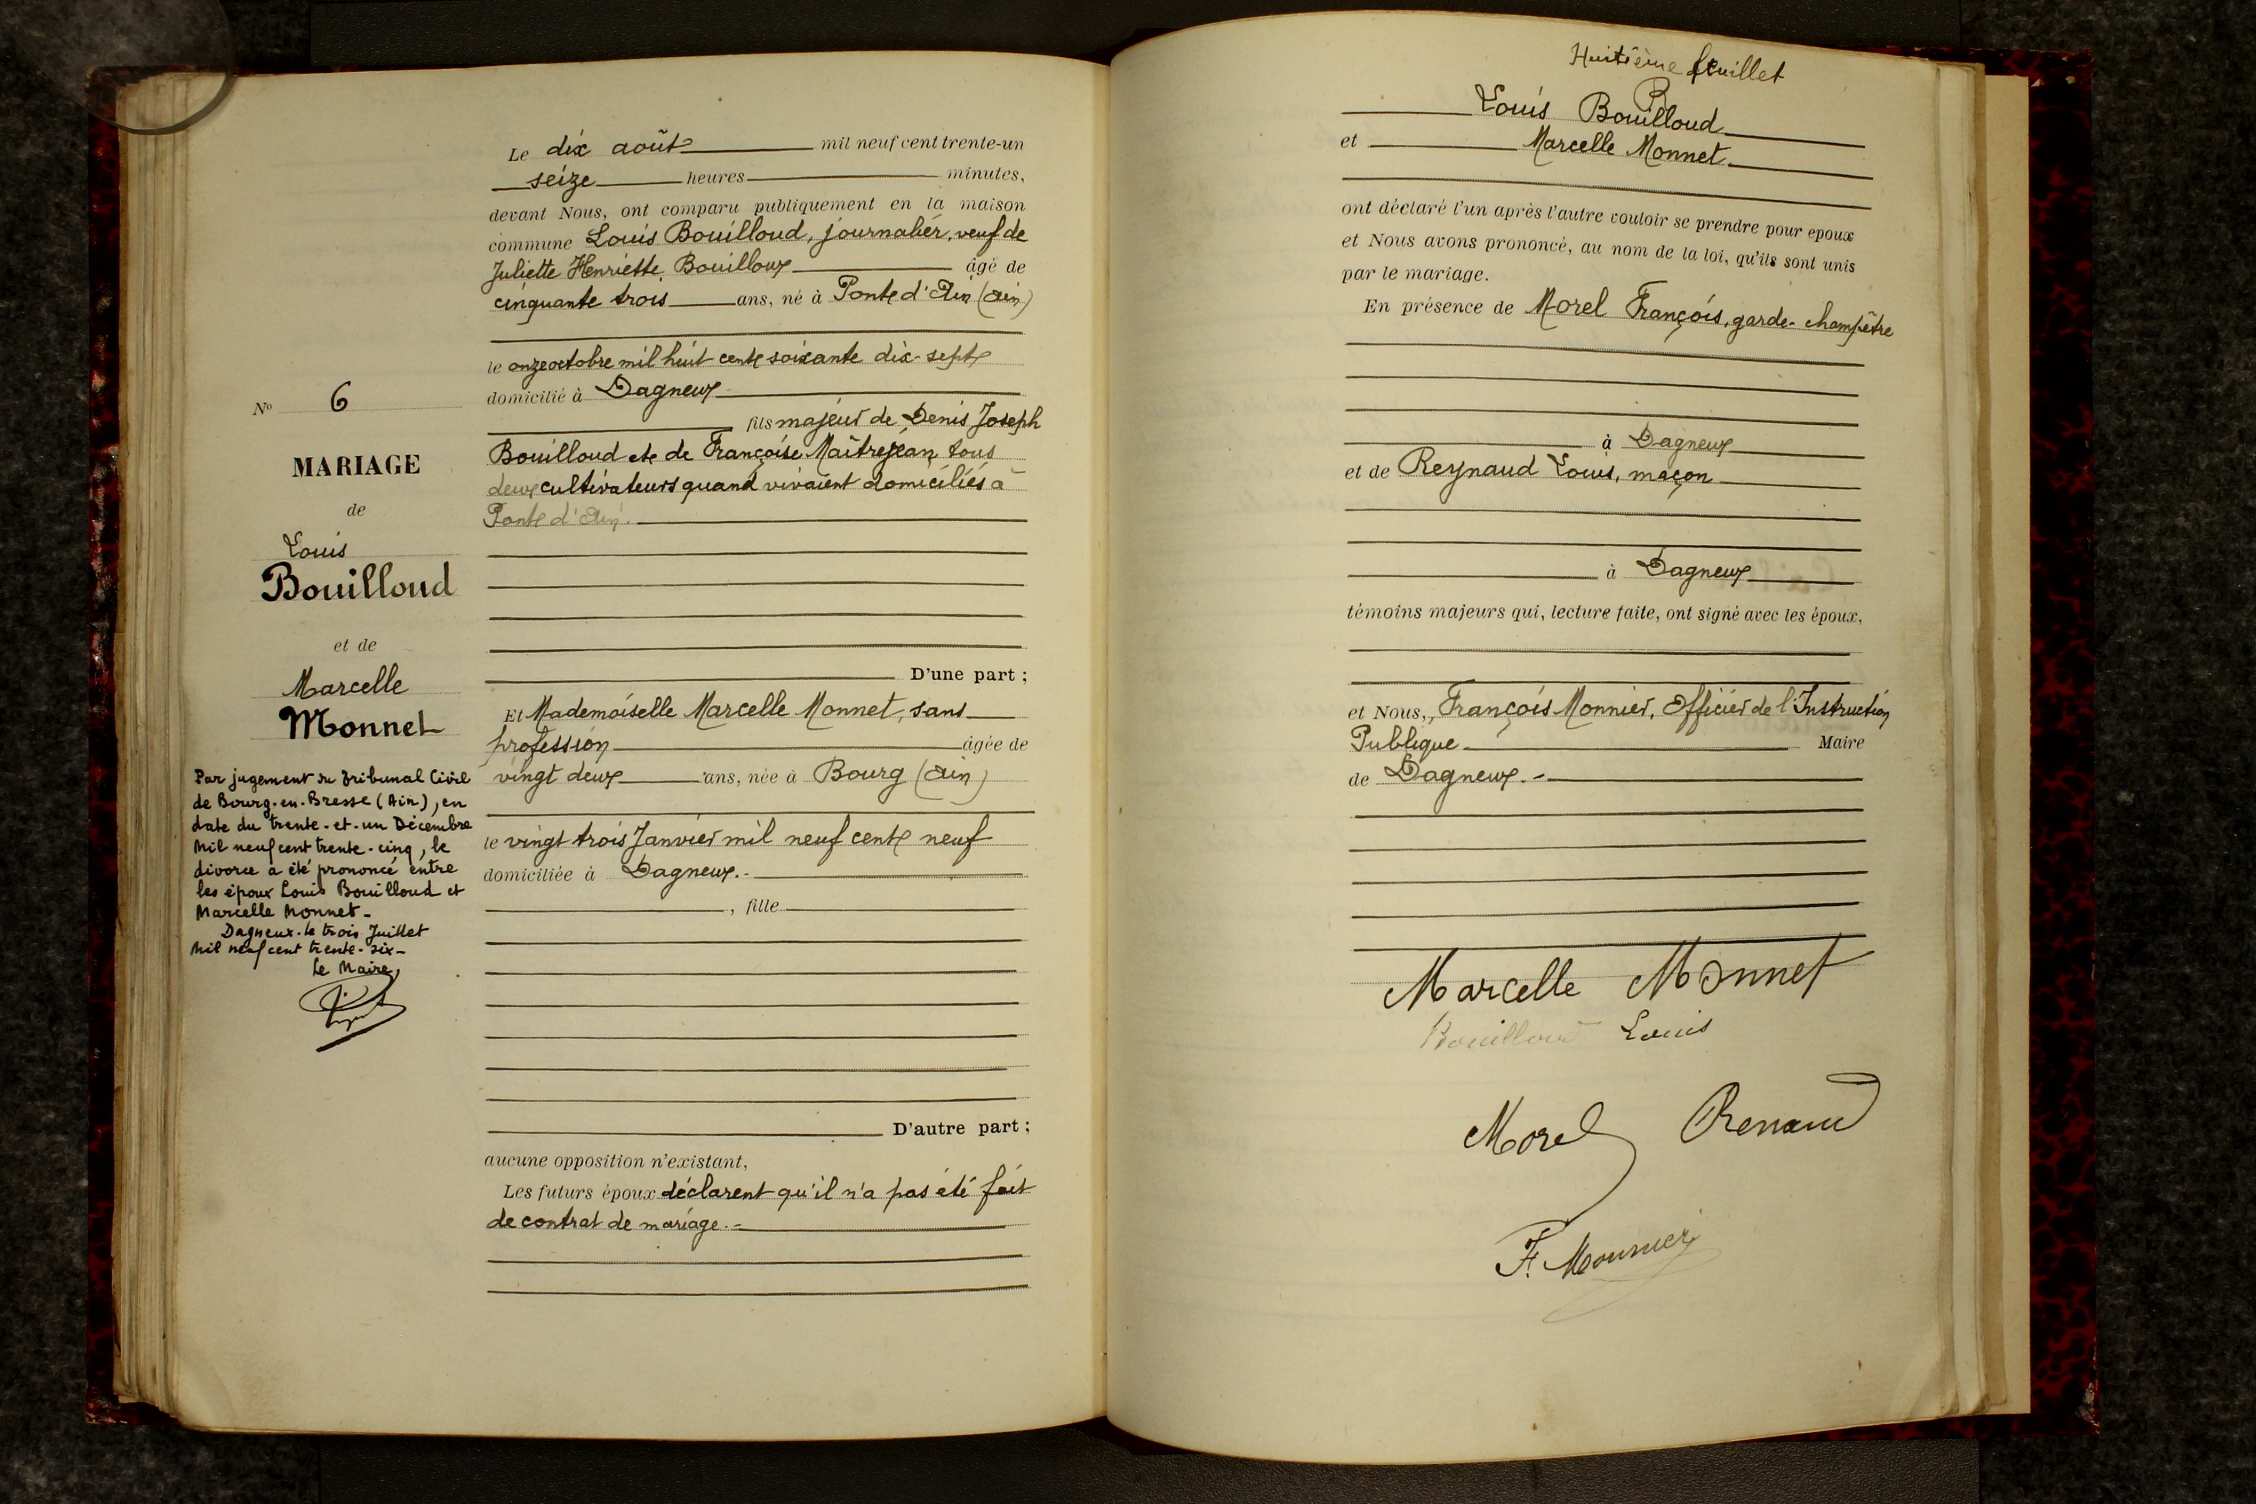 Le dix août mil neuf cent trente-un
seize heures minutes,
devant Nous, ont comparu publiquement en la maison
commune Louis Bouilloud, journalier, veuf de
Juliette Henriette Bouilloux âgé de
cinquante trois ans, né à Pont d'Ain (Ain)
le onze octobre mil huit cent soixante dix-sept
domicilié à Dagneux
fils majeur de Denis Joseph
Bouilloud et de Françoise Maîtrejean tous
deux cultivateurs quand vivaient domiciliés à
Pont d'Ain.
D'une part ;
Et Mademoiselle Marcelle Monnet, sans
profession âgée de
vingt deux ans, née à Bourg (Ain)
le vingt trois Janvier mil neuf cent neuf
domiciliée à Dagneux.-
, fille
D'autre part ;
aucune opposition n'existant,
Les futurs époux déclarent qu'il n'a pas été fait
de contrat de mariage.-
No 6
MARIAGE
de
Louis
Bouilloud
et de
Marcelle
Monnet
Par jugement du Tribunal Civil
de Bourg-en-Bresse (Ain), en
date du trente-et-un Décembre
mil neuf cent trente-cinq, le
divorce a été prononcé entre
les époux Louis Bouilloud et
Marcelle Monnet-
Dagneux-le trois Juillet
mil neuf cent trente-six-
Le Maire,
Huitième feuillet
Louis Bouilloud
et Marcelle Monnet
ont déclaré l'un après l'autre vouloir se prendre pour epoux
et Nous avons prononcé, au nom de la loi, qu'ils sont unis
par le mariage.
En présence de Morel François, garde-champêtre
à Dagneux
et de Reynaud Louis, maçon
à Dagneux
témoins majeurs qui, lecture faite, ont signé avec les époux,
et Nous, François Monnier, Officier de l'Instruction
Publique Maire
de Dagneux.-
Marcelle Monnet
Bouilloud Louis
Morel Renaud
F. Monnier